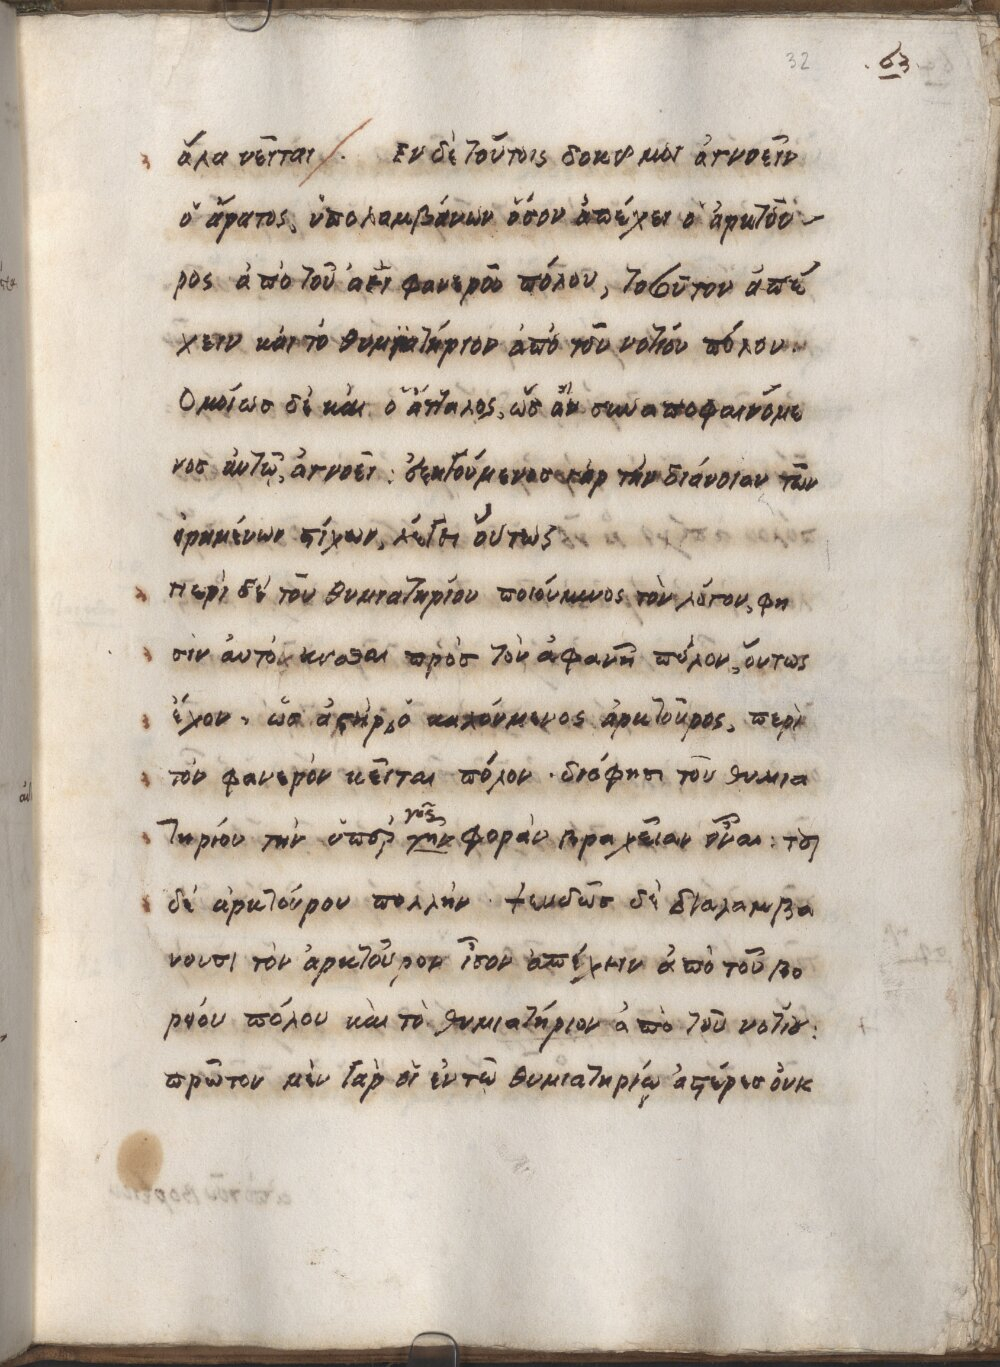 32 63
ἅλα νεῖται. Εν δὲ τούτοις δοκεῖ μοι ἀγνοεῖν
ὁ ἄρατος, ὑπολαμβάνων ὅσον ἀπέχει ὁ ἀρκτοῦ-
ρος ἀπὸ τοῦ ἀεὶ φανεροῦ πόλου, τοσοῦτον ἀπέ
χειν καὶ τὸ θυμιατήριον ἀπὸ τοῦ νοτίου πόλου.
Ομοίωσ δὲ καὶ ὁ ἄτταλος, ὡσ ἂν συναποφαινόμε
νοσ αὐτῶ, ἀγνοεῖ: ἐκτιθέμενοσ γὰρ τὴν διάνοιαν τῶν
εἰρημένων στίχων, λέγει οὕτως
περὶ δὲ τοῦ θυμιατηρίου ποιούμενος τὸν λόγον, φη
σὶν αὐτὸ κεῖσθαι πρὸσ τὸν ἀφανῆ πόλον, οὕτως
ἔχον, ὡσ ἀστὴρ ὁ καλούμενος ἀρκτοῦρος, περὶ
τὸν φανερὸν κεῖται πόλον. διό φησι τοῦ θυμια
τηρίου τὴν ὑπὲρ γῆς γῆν φορὰν βραχεῖαν εἶναι: τοῦ
δὲ ἀρκτούρου πολλήν. ψευδῶσ δὲ διαλαμβά
νουσι τὸν ἀρκτοῦρον ἴσον ἀπέχειν ἀπὸ τοῦ βο
ρείου πόλου καὶ τὸ θυμιατήριον ἀπὸ τοῦ νοτίου:
πρῶτον μὲν γὰρ οἱ ἐν τῶ θυμιατηρίῳ ἀστέρεσ οὐκ